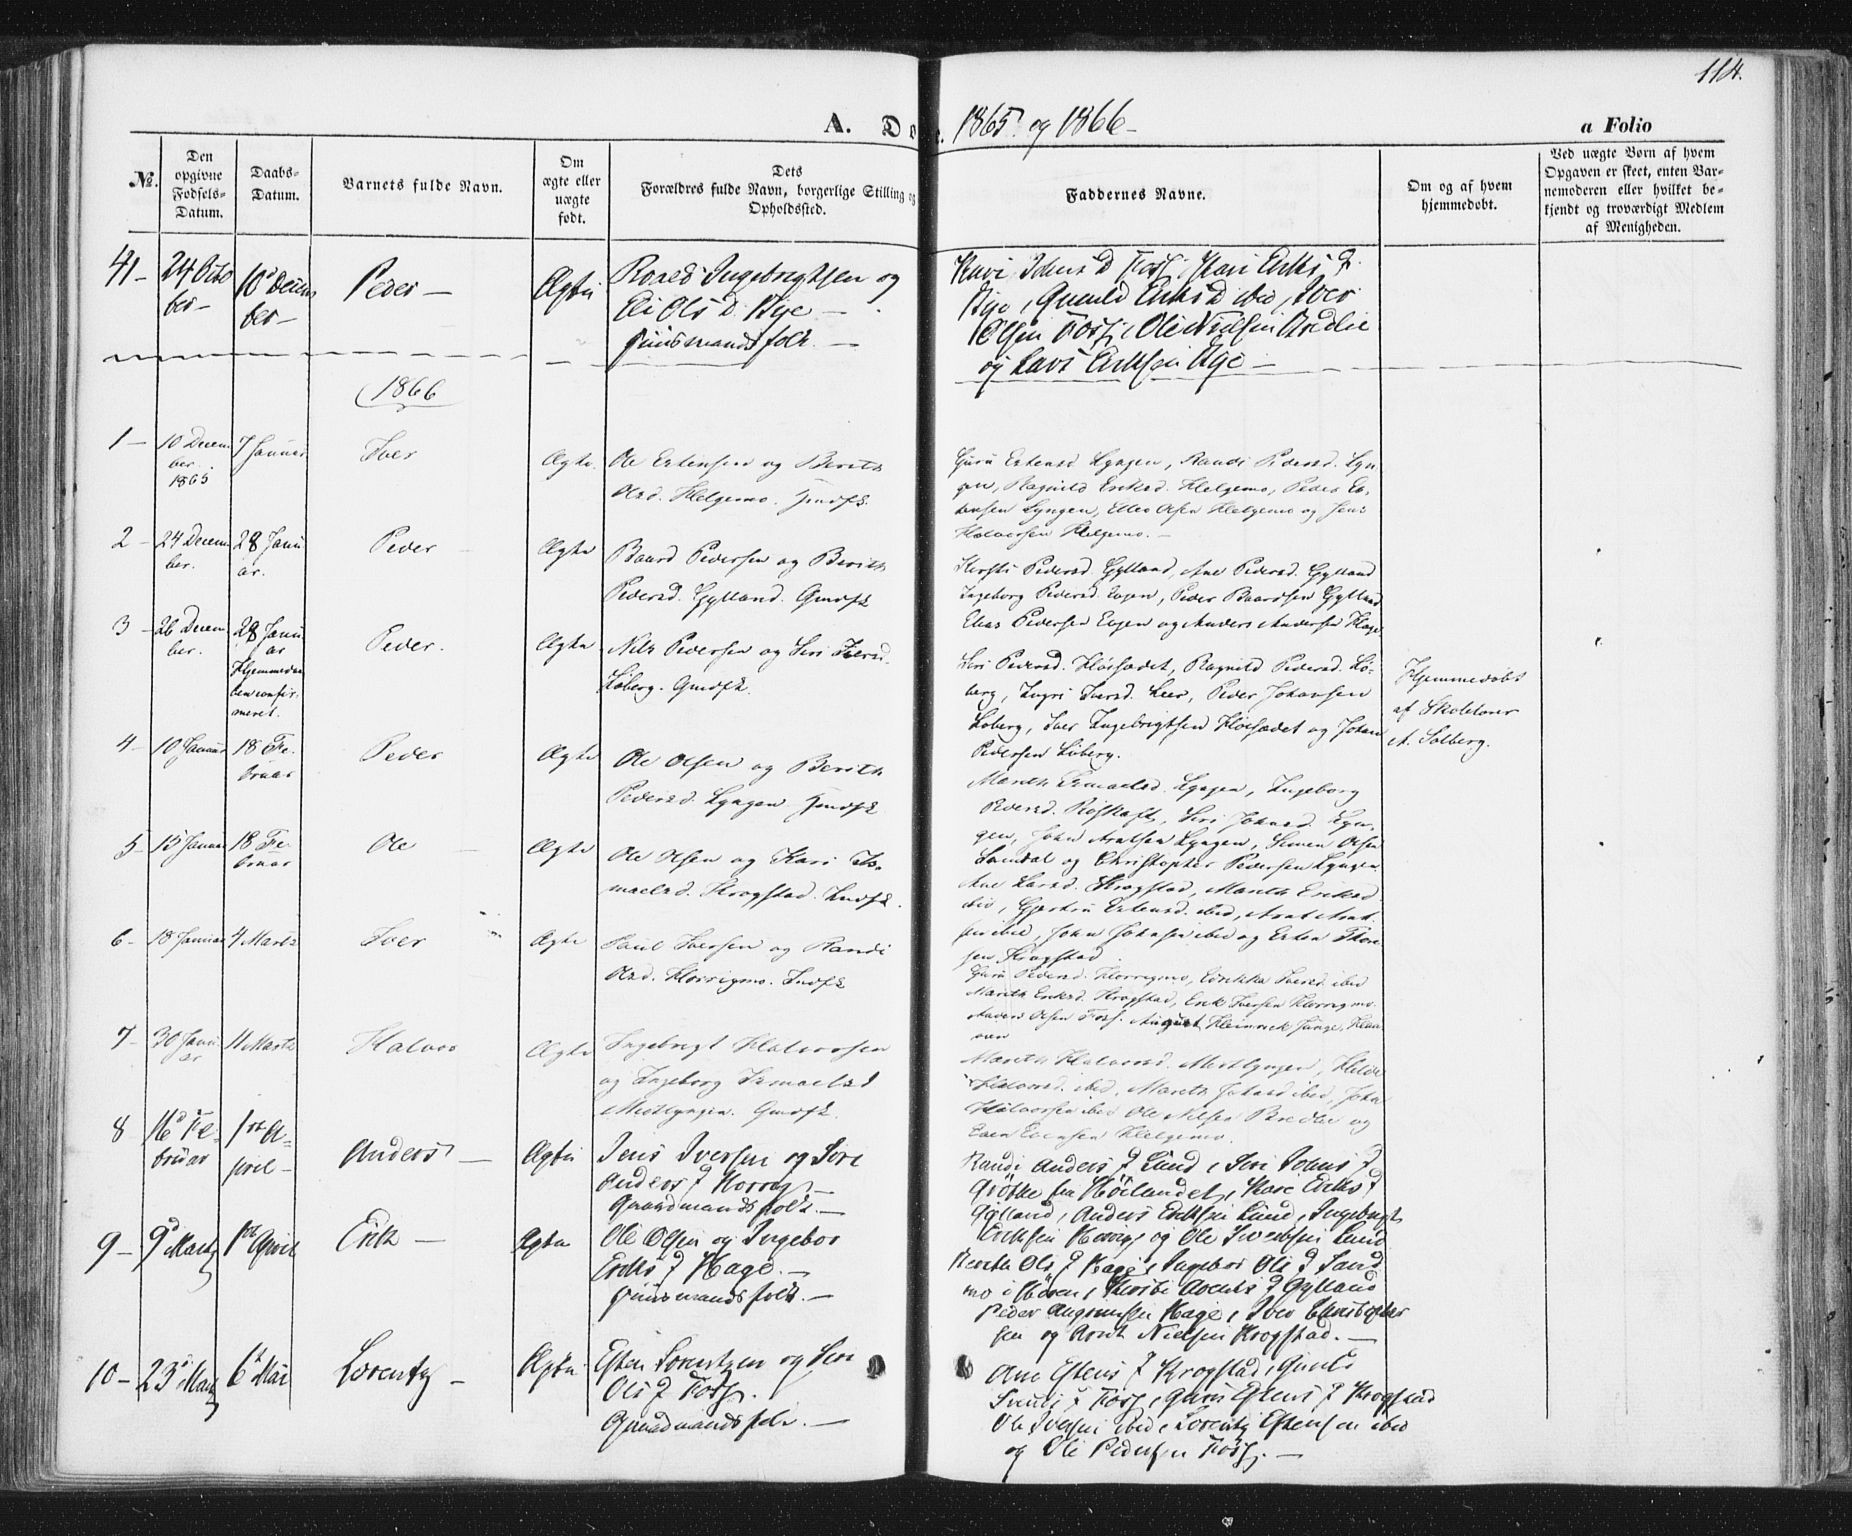 114.
A. Do e. 1865 og 1866 a Folio
No.
Den opgivne Fødsels-Datum.
Daabs-Datum.
Barnets fulde Navn.
Om ægte eller uægte født.
Dets Forældres fulde Navn, borgerlige Stilling og Opholdssted.
Faddernes Navne.
Om og af hvem hjemmedøbt.
Ved uægte Børn af hvem Opgaven er skeet, enten Barnemoderen eller hvilket bekjendt og troværdigt Medlem af Menigheden.
41 - 24 Octo
ber -
10d Decem
ber -
Peder -
Ægte
Ingebrigtsen og
Eli Ols D. Bye -
Huusmandsfolk. -
Kari Johns D Foss, Kari Eriks D
Bye, Gunild Eriks D ibid, Iver
Olsen Foss, Ole Nielsen Bredlie
og Lars Eriksen Bye -
1866
1 - 10 Decem
ber
1865
7 Januar
Iver
Ægte
Ole Estensen og Berith
Olsd. Helgemo. Hmdfk.
Guru Estensd Lyngen, Randi Pedersd. Lyn
gen, Ragnild Eriksd. Helgemo, Peder Es-
tensen Lyngen, Ellev Olsen Helgemo og Jens
Halvorsen Helgemo. -
2 - 24 Decem
ber.
28 Janu
ar.
Peder
Ægte
Baard Pedersen og Berith
Pedersd. Gylland. Gmdfk
Kersti Pedersd. Gylland, Ane Pedersd. Gylland
Ingeborg Pedersd. Evjen, Peder Baardsen Gylland
Elias Pedersen Evjen og Anders Andersen Hage
3 - 26 Decem
ber.
28 Janu
ar
Hjemmedaa
ben confir
meret.
Peder.
Ægte
Nils Pedersen og Siri Iversd.
Løberg. Gmdfk.
Siri Pedersd. Horsædet, Ragnild Pedersd. Lø-
berg, Ingri Iversd. Leer, Peder Johansen
Løberg, Iver Ingebrigtsen Horsædet og Johan
Pedersen Løberg.
Hjemmedøbt
af Skolelærer
A. Solberg.
4 - 10 Januar
18 Fe-
bruar
Peder
Ægte
Ole Olsen og Berith
Pedersd. Lyngen Hmdfk
Marith Ismaelsd. Lyngen, Ingeborg
Pedersd. Røskaft, Siri Johnsd. Lyn-
gen, John Arntsen Lyngen, Simen Olsen
Samdal og Christopher Pedersen Lyngen
5 - 15 Januar
18 Fe-
bruar
Ole
Ægte
Ole Olsen og Kari Is-
maelsd. Krogstad. Indfk.
Ane Larsd. Krogstad, Marith Eriksd
ibid, Gjertru Estensd. ibid, Arnt Arnt
sen ibid, John Johnsen ibid og Esten Thore
sen Krogstad
6 - 18 Januar
4 Marts
Iver
Ægte
Paul Iversen og Randi
Olsd. Horrigmo. Indfk
Guru Pedersd. Horrigmo, Erikka Iversd. ibid
Marith Eriksd. Krogstad, Erik Iversen Horrigmo
Anders Olsen Foss. August Heinrich Junge,
7 - 30 Janu
ar
11 Marts
Halvor
Ægte
Ingebrigt Halvorsen
og Ingeborg Ismaelsd
Midtlyngen. Gmdfk.
Marith Halvorsd. Midtlyngen, Hilde
Halvorsd. ibid, Marith Johnsd ibid, John
Halvorsen ibid Ole Nilsen Bredlie og
Even Evensen Helgemo.
8 16d Fe-
bruar
1ste A-
pril -
Anders -
Ægte
Jens Iversen og Siri
Anders D Horrig -
Gaardmandsfolk. -
Randi Anders D Lund, Siri Johns D
Grøtte fra Høilandet, Kari Eriks D
Gylland, Anders Eriksen Lund, Ingebrigt
Eriksen Horrig og Ole Iversen Lund
9 - 9d Marts
1ste April
Erik -
Ægte
Ole Olsen og Ingebor
Eriks D Hage. -
Huusmandsfolk. -
Berith Ols D Hage, Ingebor Ols D Sand
mo i Hølen, Kersti Arnts D Gylland
Peder Hage, Iver Christopher
sen og Arnt Nielsen Krogstad. -
10 - 23d Marts
6d Mai
Lorentz -
Ægte
Esten Lorentzen og Siri
Ols D Foss.
Gaardmandsfolk. -
Ane Estens D Krogstad, Gunil
D Foss, Guru Estens D Krogstad
Ole Iversen ibid, Lorentz Estensen ibid
og Ole Pedersen Foss. -